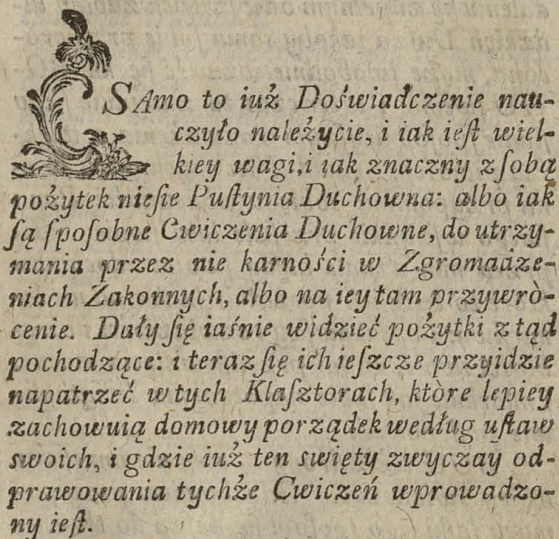 SAmo to iuż Doświadczenie nau-
czyło należycie, i iak ieſt wiel-
kiey wagi,i iak znaczny z ſobą
pożytek nieſie Puſtynia Duchowna: albo iak
ſą ſpoſobne Cwiczenia Duchowne, do utrzy-
mania przez nie karności w Zgromadze-
niach Zakonnych, albo na iey tam przywrò-
cenie. Dały ſię iaśnie widzieć pożytki z tąd
pochodzące: i teraz ſię ich ieſzcze przyidzie
napatrzeć w tych Klaſztorach, ktòre lepiey
zachowuią domowy porządek według uſtaw
swoich, i gdzie iuż ten święty zwyczay od-
prawowania tychże Cwiczeń wprowadzo-
ny ieſt.